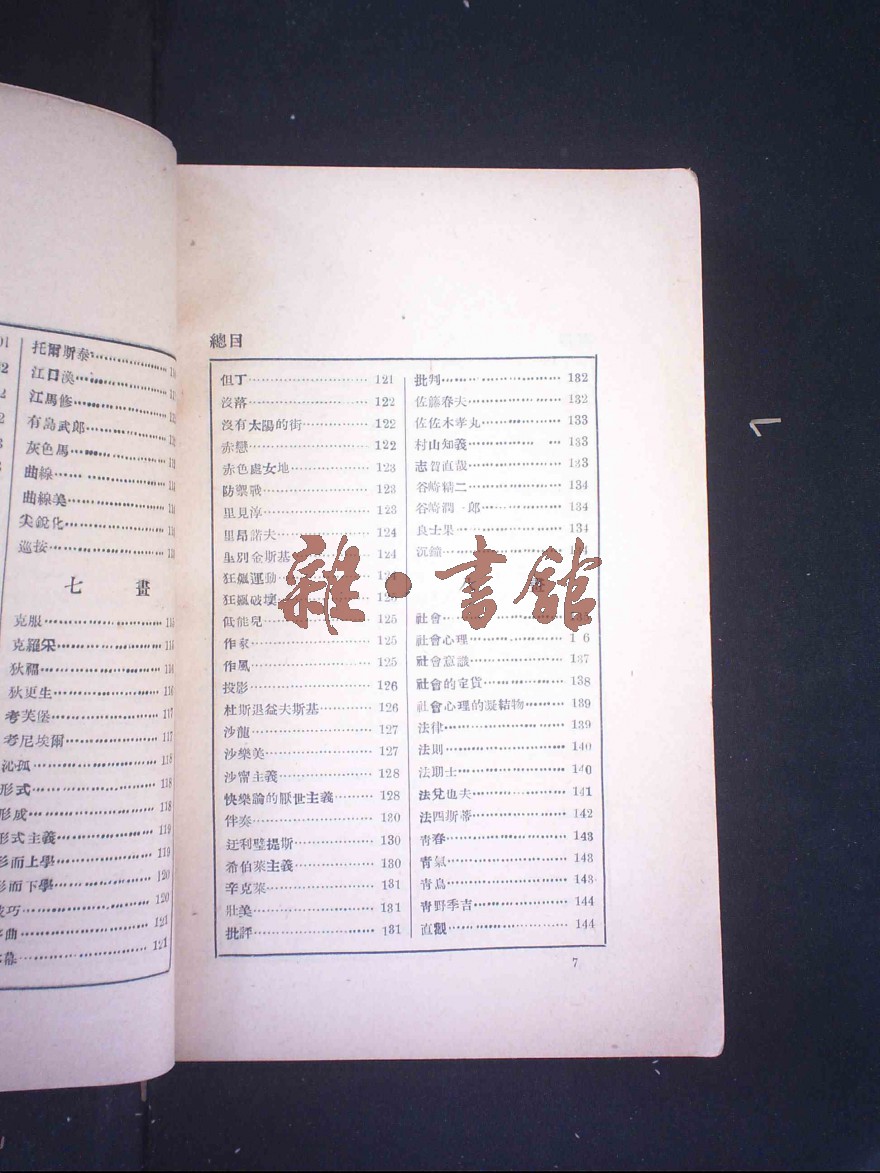 托爾斯泰
江口渙
江馬修
有島武郎
灰色馬
曲線
曲線美
尖銳化
巡按
七畫
克服
克羅采
狄福
狄更生 116
考芙堡 117
考尼埃爾 117
沁孤 118
形式 118
形成 118
形式主義 119
形而上學 119
形而下學 120
技巧 120
序曲 121
序幕 121
總目
但丁 121
沒落 122
沒有太陽的街 122
赤戀 122
赤色處女地 123
防禦戰 123
里見淳 123
里昂諾夫 124
別金斯基 124
狂飆運動 124
狂飆破壞
低能兒 125
作家 125
作風 125
投影 126
杜斯退益夫斯基 126
沙龍 127
沙樂美 127
沙甯主義 128
快樂論的厭世主義 128
伴奏 130
迂利璧提斯 130
希伯萊主義 130
辛克萊 131
壯美 131
批評 131
批判 132
佐藤春夫 132
佐佐木孝丸 133
村山知義 133
志賀直哉 133
谷崎精二 134
谷崎潤一郎 134
良士果 134
沉鐘
畫
社會 135
社會心理 1 6
社會意識 137
社會的定貨 138
社會心理的凝結物 139
法律 139
法則 140
法朗士 140
法兌也夫 141
法四斯蒂 142
青春 143
青氣 143
青鳥 143
青野季吉 144
直觀 144
7
雜·書館